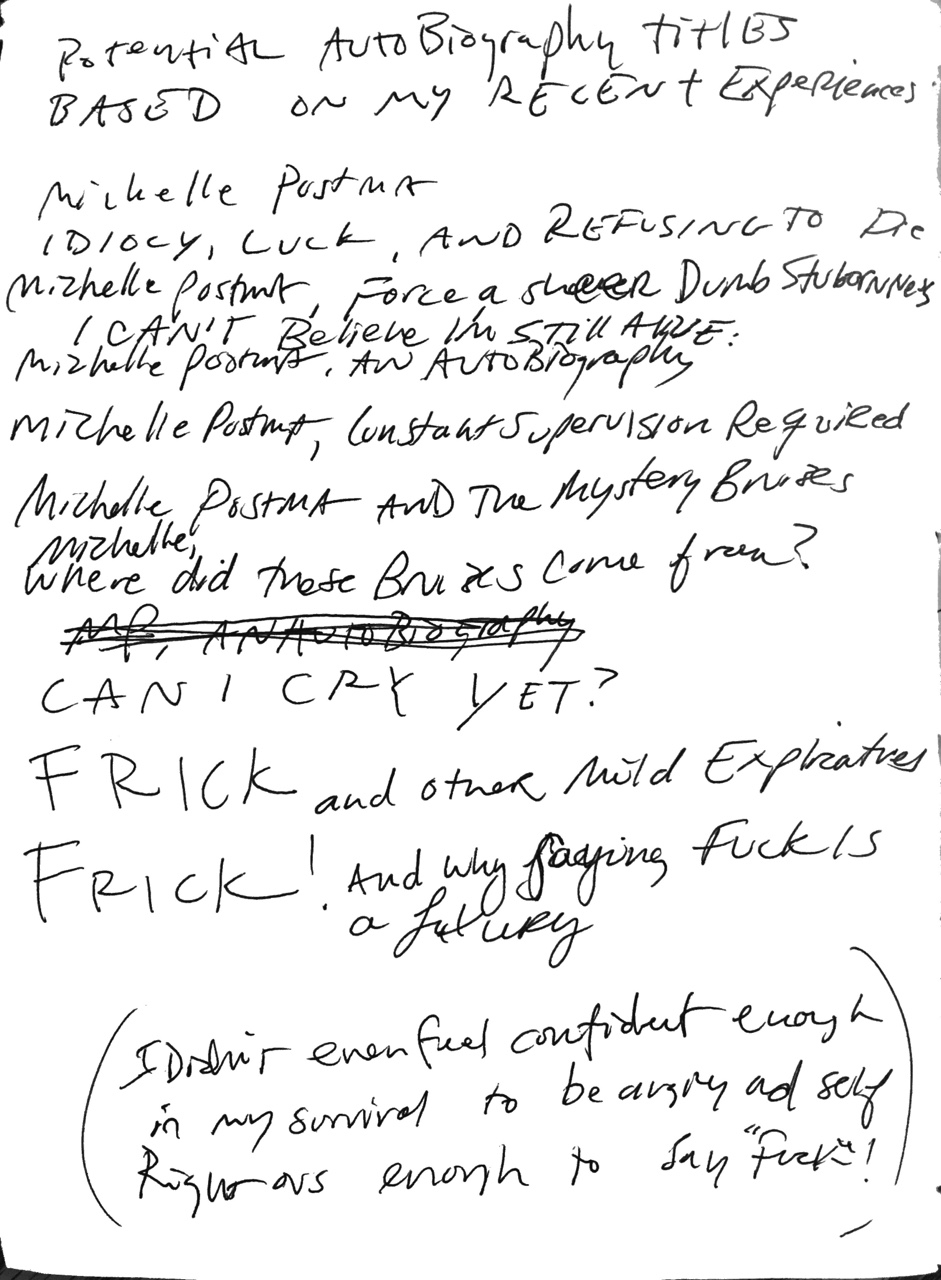 Potential AutoBiography Titles
BASED ON MY RECENT Experiences
Michelle Postma
IDIOCY, LUCK, AND REFUSING TO Die
Michelle Postma, Force a sheeer Dumb Stubornness
I CAN'T Believe Im STill Alive:
Michelle Postma, AN AUTOBiography
Michelle Postma, Constant Supervision Required
Michelle Postma AND The Mystery Bruises
Michelle,
Where did these Bruises Come from?
MP, AN AutoBiography
CAN I CRY YET?
FRICK and other Mild Explicatives
FRICK! And why saying Fuck Is
a luxury
(I Didn't even feel confident enough
in my survival to be angry and self
Righteous enough to Say "Fuck"!)